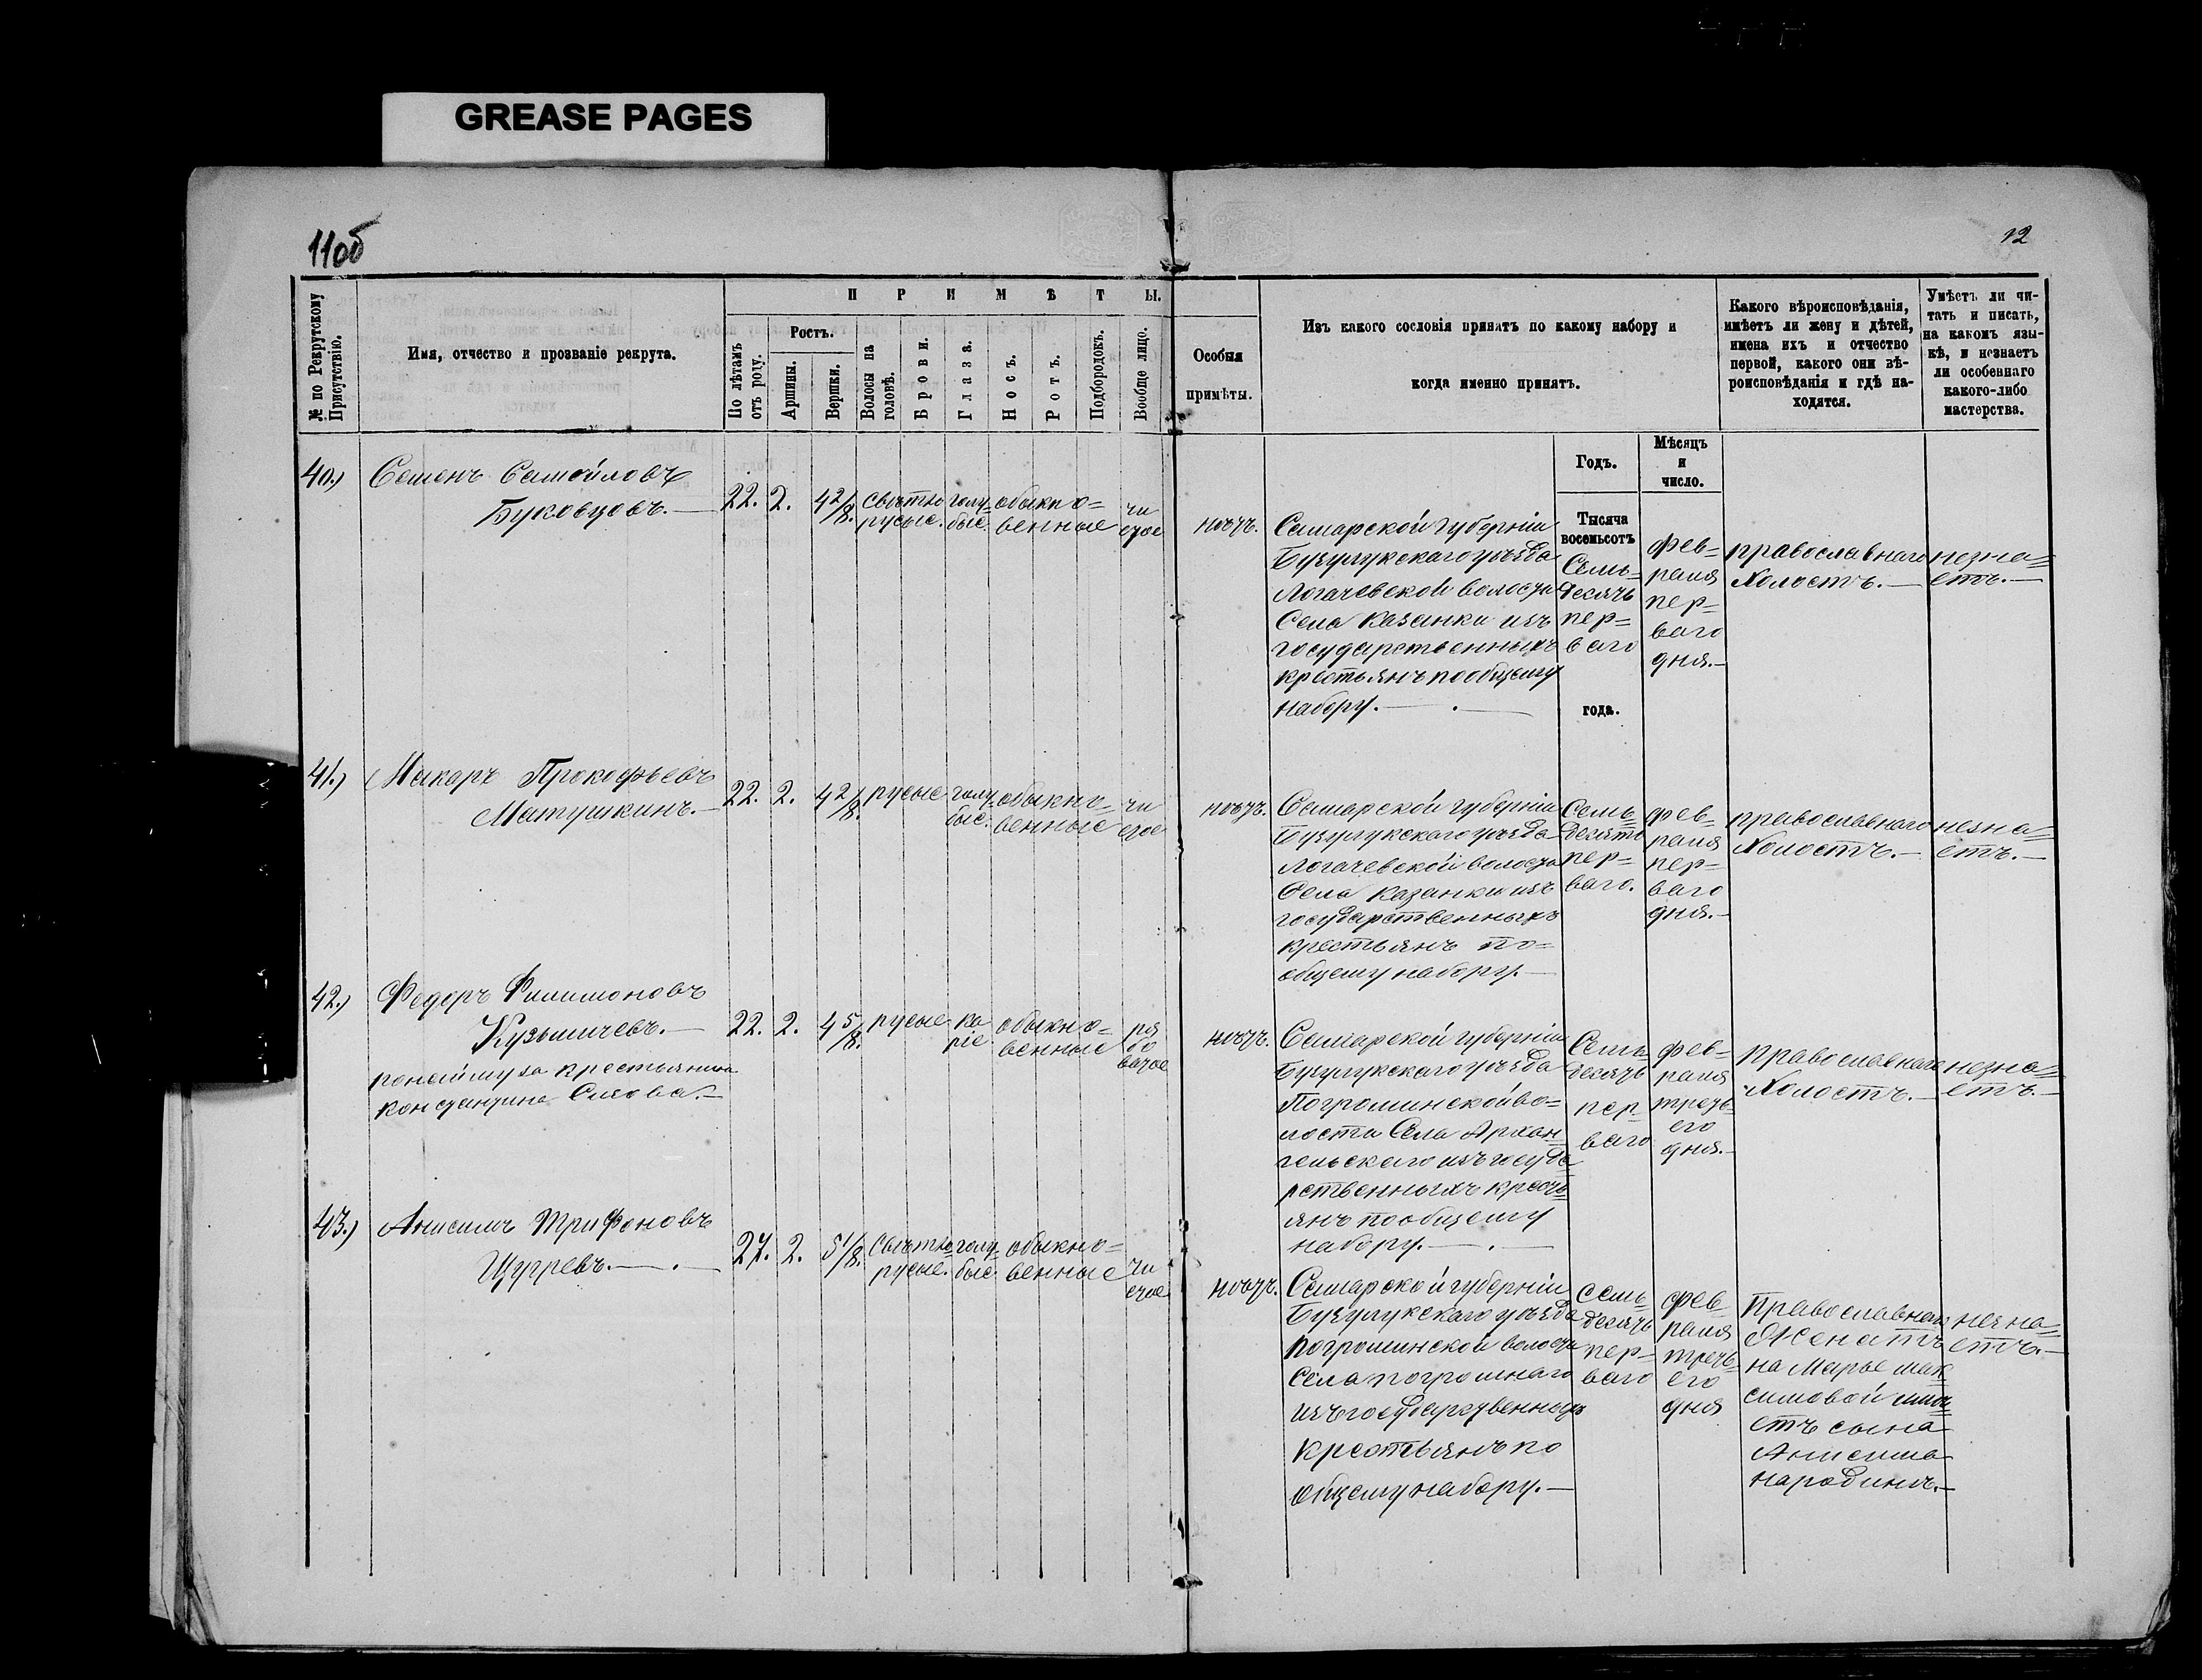 GREASE PAGES
11об
12
№ по Рекрутскому Присутствію.
Имя, отчество и прозваніе рекрута.
П Р И М Ѣ Т Ы.
По лѣтамъ отъ роду.
Ростъ.
Аршины.
Вершки.
Волосы на головѣ.
Брови.
Глаза.
Носъ.
Ротъ.
Подбородокъ.
Вообще лицо.
Особыя
примѣты.
Изъ какого сословія принятъ по какому набору и
когда именно принятъ.
Какого вѣроисповѣданія,
имѣетъ ли жену и дѣтей,
имена ихъ и отчество
первой, какого они вѣ-
роисповѣданія и гдѣ на-
ходятся.
Умѣетъ ли чи-
тать и писать,
на какомъ язы-
кѣ, и незнаетъ
ли особеннаго
какого-либо
мастерства.
Годъ.
Мѣсяцъ
и
число.
40.) Семенъ Самойловъ
Буковцовъ.—
22. 2. 4 2/8.
свѣтло
русые.
голу-
бые.
обыкно=
венные
чи
стое
нѣтъ.
Самарской губерніи
Бузулукскаго уѣзда
Логачевской волости
Села Казанки изъ
государственныхъ
крестьянъ по общему
набору.—
Тысяча
восемьсотъ
Семь-
десятъ
пер=
ваго
года.
фев=
раля
пер=
ваго
дня.—
православнаго
Холостъ.—
незна=
етъ.—
41.) Макаръ Прокофьевъ
Матушкинъ.—
22. 2. 4 2/8.
русые
голу
бые.
обыкно=
венные
чи
стое
нѣтъ.
Самарской губерніи
Бузулукскаго уѣзда
Логачевской волости
Села Казанки изъ
государственныхъ
крестьянъ по=
общему набору.—
Семь
десятъ
пер=
ваго.
фев=
раля
пер=
ваго
дня.—
православнаго
Холостъ.—
незна=
етъ.—
42.) Федоръ Филимоновъ
Кузьмичевъ.—
понайму за крестьянина
Константина
22. 2. 4 5/8.
русые
ка
ріе
обыкно=
венные
ря
бо
ватое
нѣтъ.
Самарской губерніи
Бузулукскаго уѣзда
Погроминской во=
лости Села Архан
гельскаго изъ госуда
рственныхъ кресть
янъ по общему
набору.—
Семь
десятъ
пер
ваго
фев=
раля
треть
его
дня.—
православнаго
Холостъ.—
незна=
етъ.—
43.) Анисимъ Трифоновъ
27. 2. 5 1/8.
Свѣтло
русые.
голу
бые
обыкно=
венные
чи
стое
нѣтъ.
Самарской губерніи
Бузулукскаго уѣзда
Погроминской волости
Села Погромнаго
изъ государственныхъ
крестьянъ по
общему набору.—
Семь
десятъ
пер=
ваго
фев
раля
треть
его
дня
Православнаго
Женатъ
на Марье Мак
симовой имѣ
етъ сына
Анисима
народинѣ.—
незна=
етъ.—